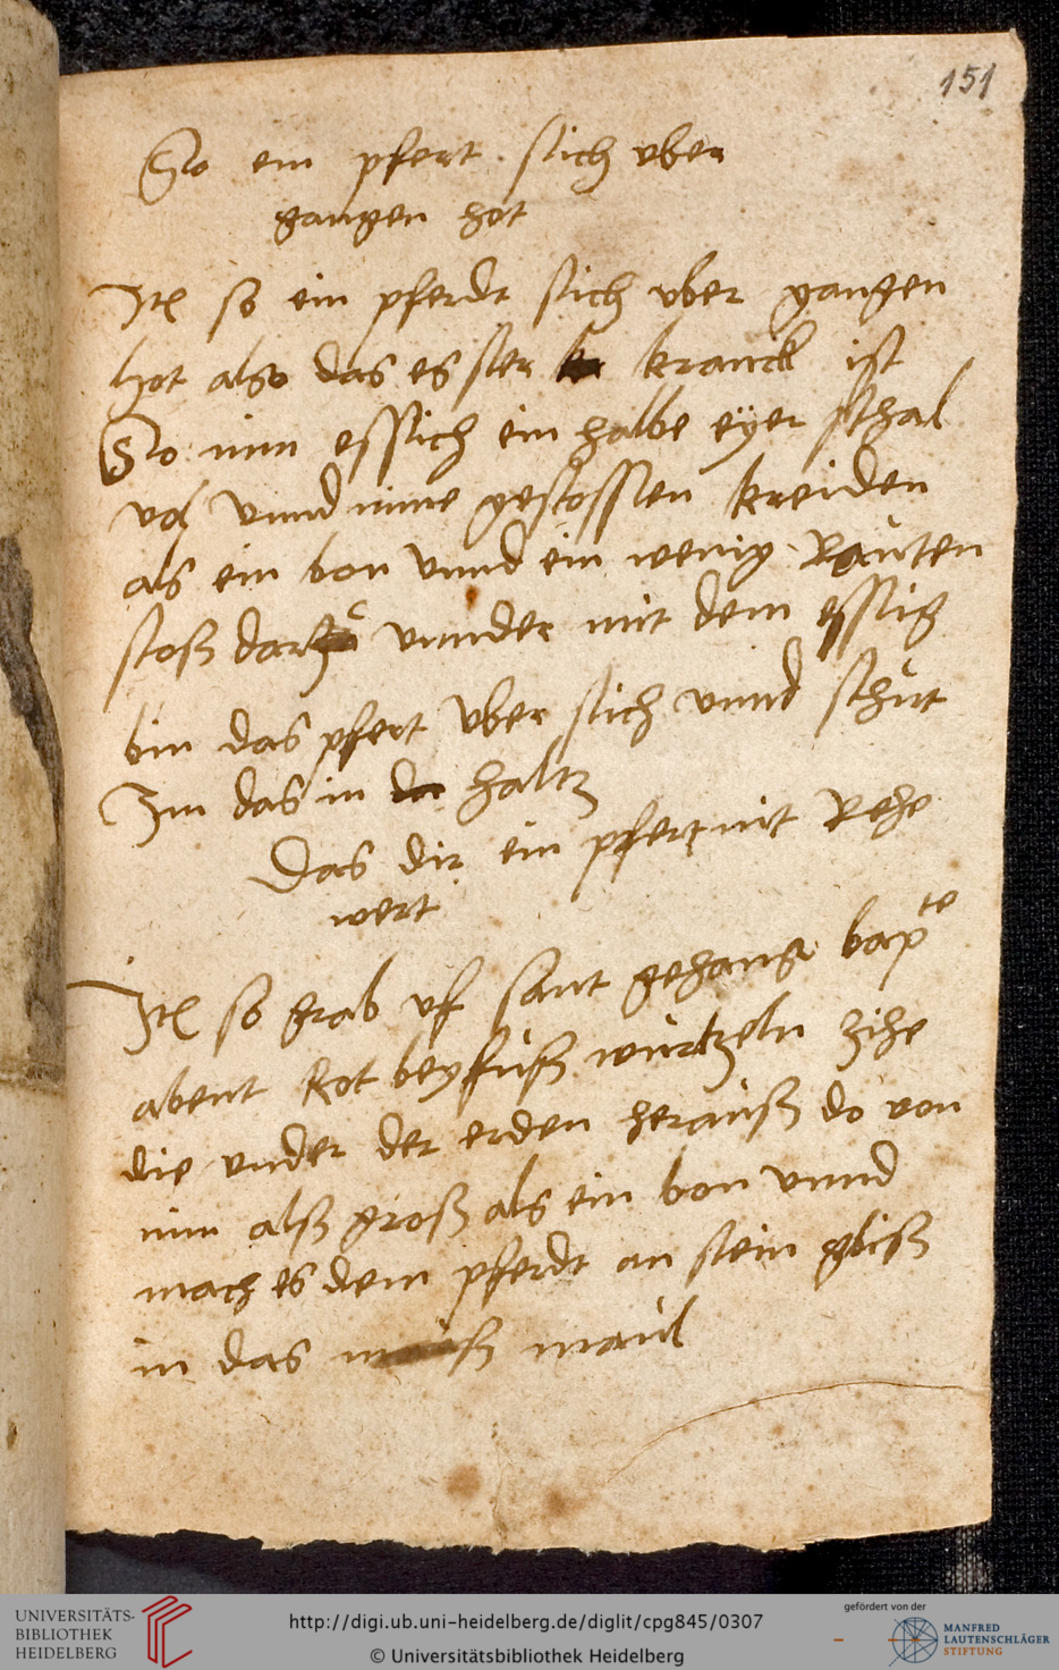 151
So ein pfert sich uber
gangen hot
Itē so ein pferdt sich uber gangen
hot also das es ser kranck ist
So nim essich ein halbe eyer schal
vol vnnd nime gestossen kreiden
als ein bon vnnd ein wenig Rauten
stoß darzu vnnder mit dem essig
bin das pfert vber sich vnnd schut
Im das in haltz
Das dir ein pfert nit Rehe
wert
Itē so grab vf sant gehans bapte
abent Rot beyfuß wurtzeln zihe
die vnder der erden herauß do von
nim alß groß als ein bon vnnd
mach es dem pferdt an stein gbiß
in das maul
UNIVERSITÄTS-
BIBLIOTHEK
HEIDELBERG
http://digi.ub.uni-heidelberg.de/diglit/cpg845/0307
© Universitätsbibliothek Heidelberg
gefördert von der
MANFRED
LAUTENSCHLÄGER
STIFTUNG